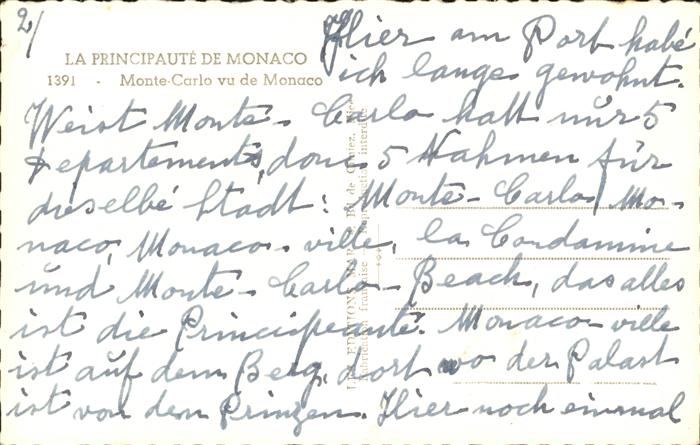 2/
LA PRINCIPAUTÉ DE MONACO
1391 - Monte-Carlo vu de Monaco
Hier am Port habé
ich lange gewohnt.
Weist Monte- Carlo hatt nur 5
Departements, donc 5 Nahmen für
dieselbé Stadt: Monte- Carlo, Mo-
naco, Monaco- ville, la Condamine
und Monte- Carlo- Beach, das alles
ist die Principeauté. Monaco- ville
ist auf dem Berg, dort wo der Palast
ist von dem Prinzen. Hier noch einmal